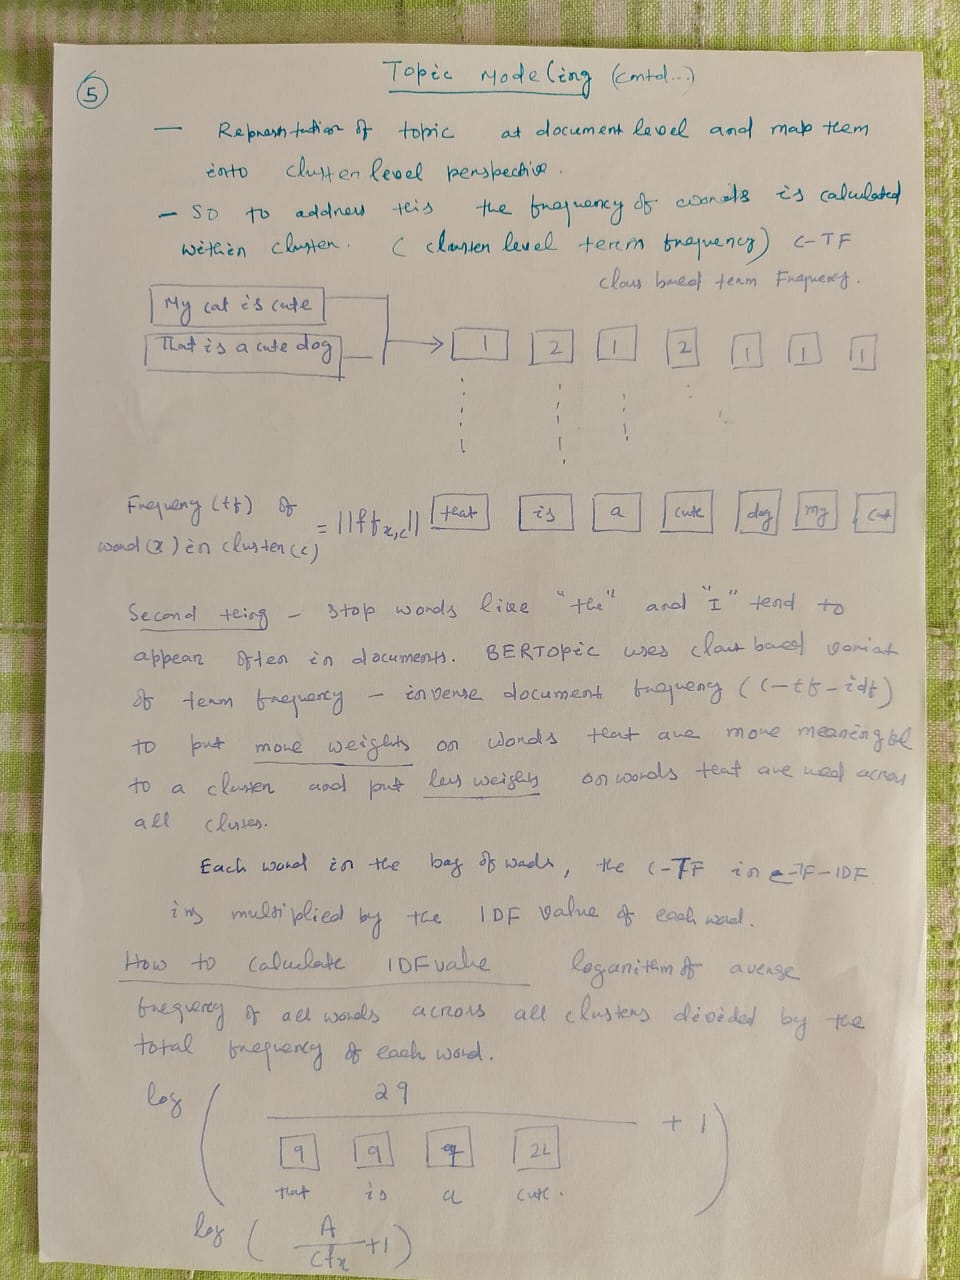 5
Topic Modeling (contd...)
— Representation of topic at document level and map them
into cluster level perspective.
— So to address this the frequency of words is calculated
within cluster. (cluster level term frequency) C-TF
Class based term Frequency.
My cat is cute
That is a cute dog
1 2 1 2 1 1 1
Frequency (tf) of
word (x) in cluster (c) = ||tf x,c||
that is a cute dog my cat
Second thing – stop words like "the" and "I" tend to
appear often in documents. BERTopic uses class based variat
of term frequency – inverse document frequency (c-tf-idf)
to put more weights on words that are more meaningful
to a cluster and put less weights on words that are used across
all cluses.
Each word in the bag of words, the C-TF in c-TF-IDF
is multiplied by the IDF value of each word.
How to calculate IDF value logarithm of average
frequency of all words across all clusters divided by the
total frequency of each word.
log ( 29 + 1 )
9 9 22
that is a cute.
log ( A / cfx +1)